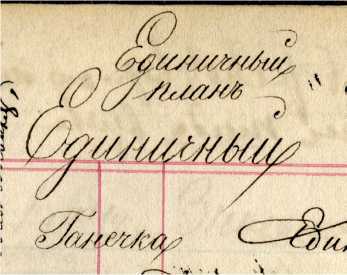 Единичный
планъ
Единичный
Танечка